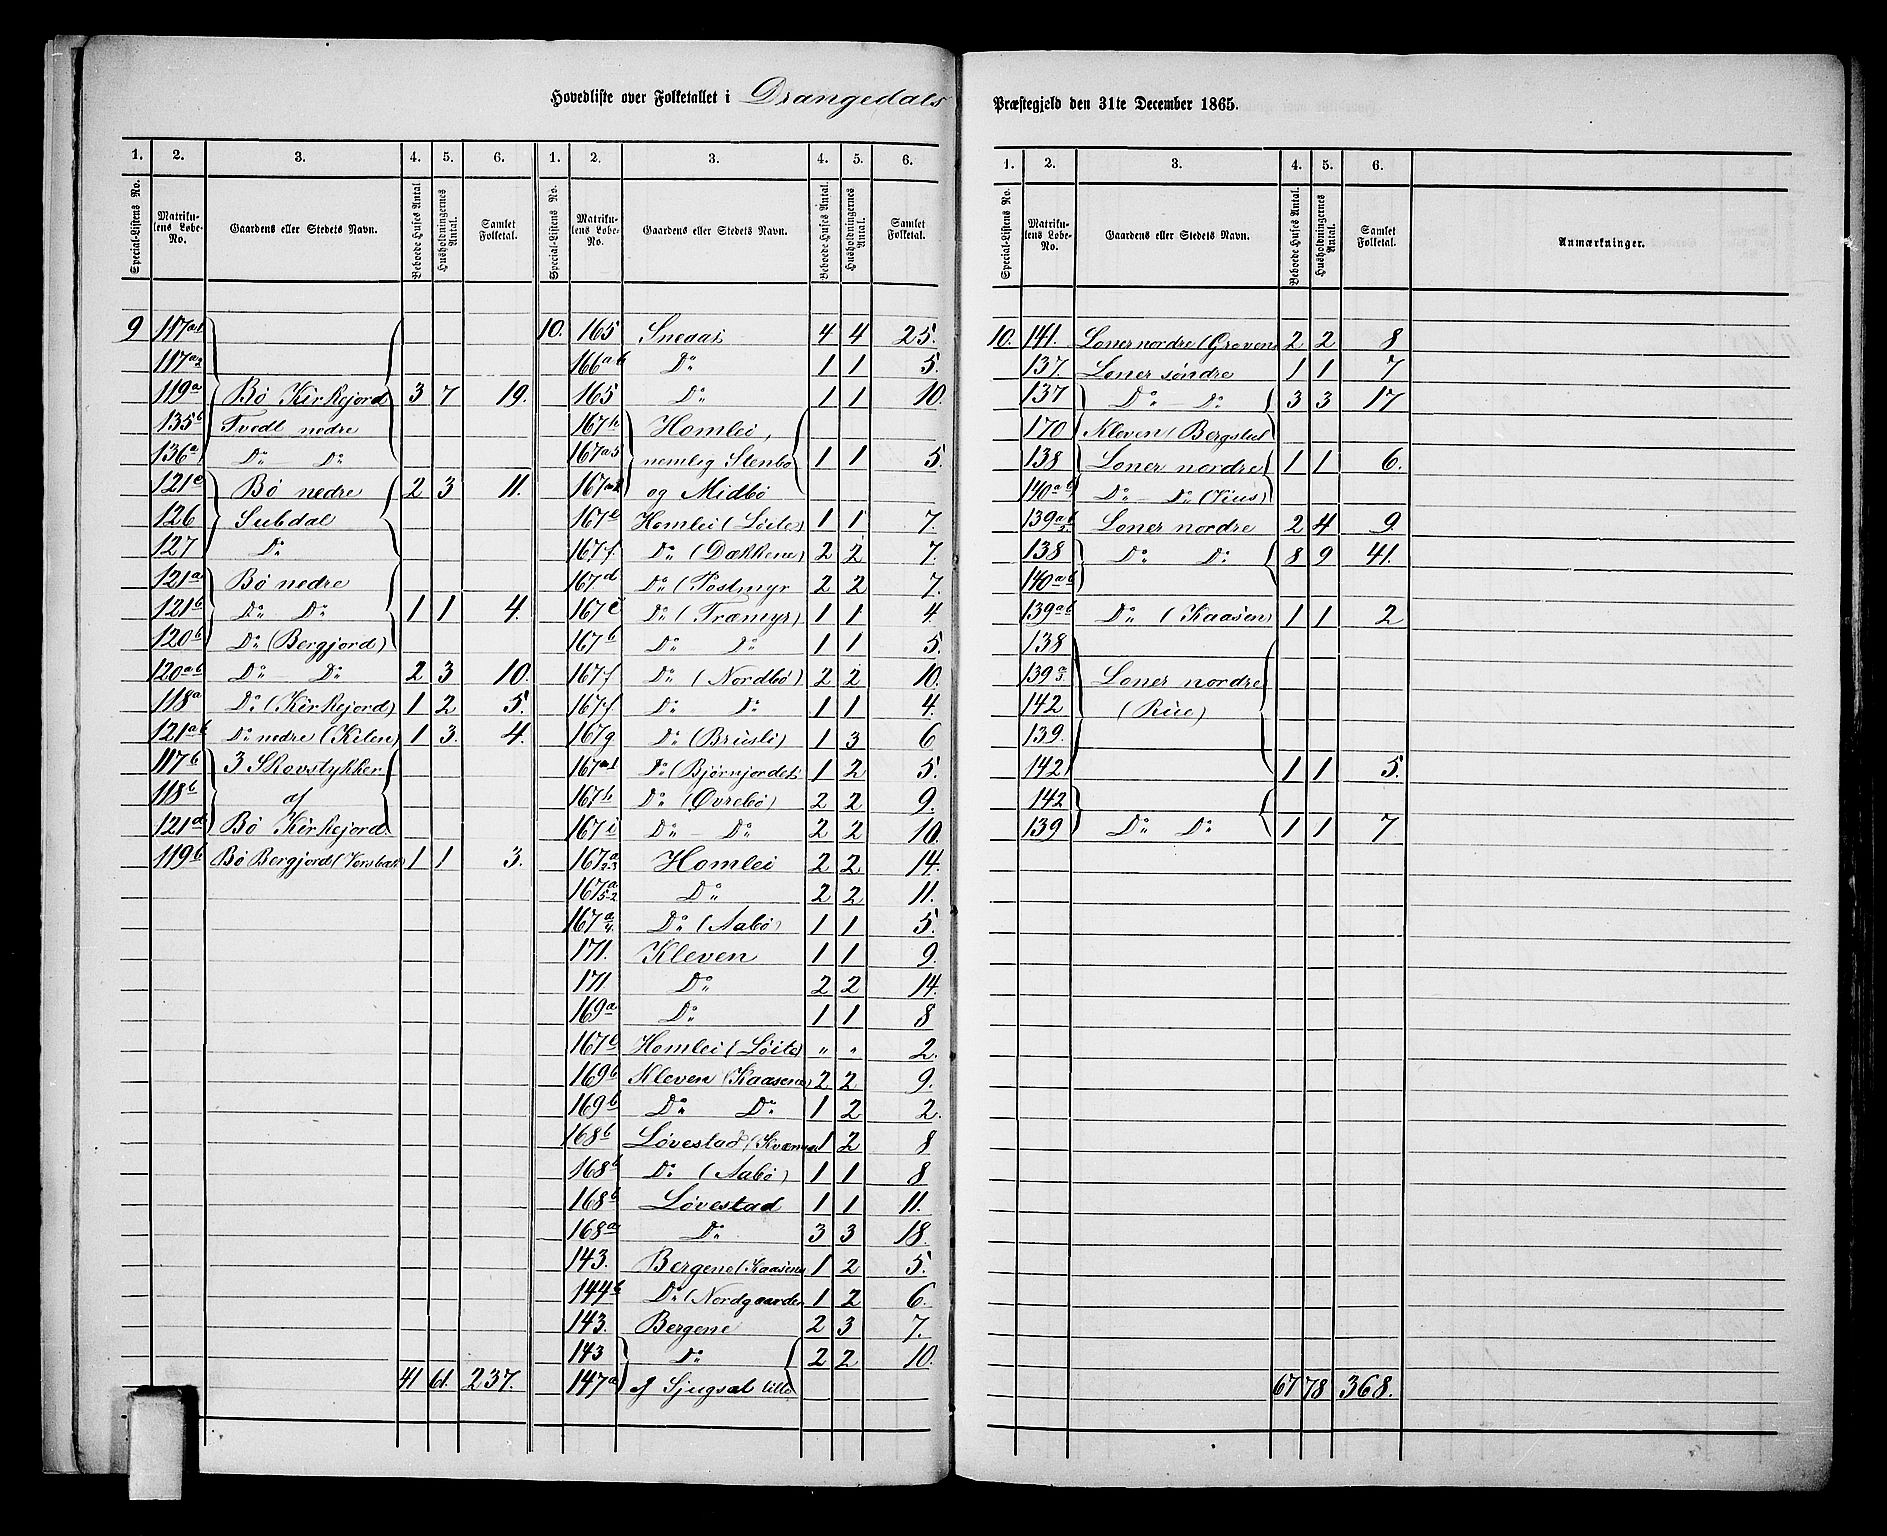 Hovedliste over Folketallet i Drangedals
1. 2. 3. 4. 5. 6. 1. 2. 3. 4. 5. 6.
Special-Listens No. Matrikulens Løbe-No. Gaardens eller Stedets Navn. Beboede Huses Antal. Husholdningernes Antal. Samlet Folketal. Special-Listens No. Matrikulens Løbe-No. Gaardens eller Stedets Navn. Beboede Huses Antal. Husholdningernes Antal. Samlet Folketal.
9 117a1
117a2
119a Bø Kirkejord 3 7 19.
135b Tvedt nedre
136a Do Do
121c Bø nedre 2 3 11.
126 Subdal
127 Do
121a Bø nedre
121b Do Do 1 1 4.
120b Do (Bergjord)
120ab Do Do 2 3 10.
118a Do (Kirkejord) 1 2 5.
121ab Do nedre (Kilen) 1 3. 4.
117b 3 Skovstykker
118b af
121d Bø Kirkejord.
119b Bø Bergjord 1 1 3.
41 61. 237.
10. 165 Sneaas 4 4 25.
166ab Do 1 1 5.
165 Do 1 1 10.
167h Homlei,
167a5 nemlig Stenbø 1 1 5.
og Midbø
Homlei (Løite) 1 1 7.
167f. Do (Dækkene) 2 2 7.
167d Do (Postmyr 2 2 7.
Do (Træmyr) 1 1 4.
167b Do Do 1 1 5.
167f Do (Nordbø) 2 2 10.
167f. Do Do 1 1 4.
167g Do (Brusli) 1 3 6
167a1 Do (Bjørnjordet 1 2 5.
167h Do (Øvrebø) 2 2 9.
167i Do Do 2 2 10.
167a 2-3 Homlei 2 2 14.
167a 5-2 Do 2 2 11.
167a 4. Do (Aabø) 1 1 5.
171. Kleven 1 1 9.
171 Do 2 2 14.
169a Do 1 1 8
Homlei (Løite) " " 2.
169b Kleven (Kaasene) 2 2 9.
169b Do Do 1 2 2.
168b Løvestad 1 2 8
168b Do (Aabø) 1 1 8
168b Løvestad 1 1 11.
168a Do 3 3 18.
143. Bergene (Kaasene 1 2 5.
144b Do (Nordgaarden 1 2 6.
143. Bergene 2 3 7.
143 Do 2 2 10.
147a af Sjugsal lille
Præstegjeld den 31te December 1865.
1. 2. 3. 4. 5. 6.
Special-Listens No. Matrikulens Løbe-No. Gaardens eller Stedets Navn. Beboede Huses Antal. Husholdningernes Antal. Samlet Folketal. Anmærkninger.
10. 141. Loner nordre (Grovene 2 2 8
137. Loner søndre 1 1 7
137 Do Do 3 3 17
170 Kleven (Bergstul
138 Loner nordre 1 1 6.
140ab Do Do (Rius)
139ab 2. Loner nordre 2 4 9.
138 Do Do 8 9 41.
140ab
139ab Do (Kaasen) 1 1 2
138
139a 3. Loner nordre
142 (Riie)
139.
142 1 1 5.
142
139 Do Do 1 1 7
67 78 368.